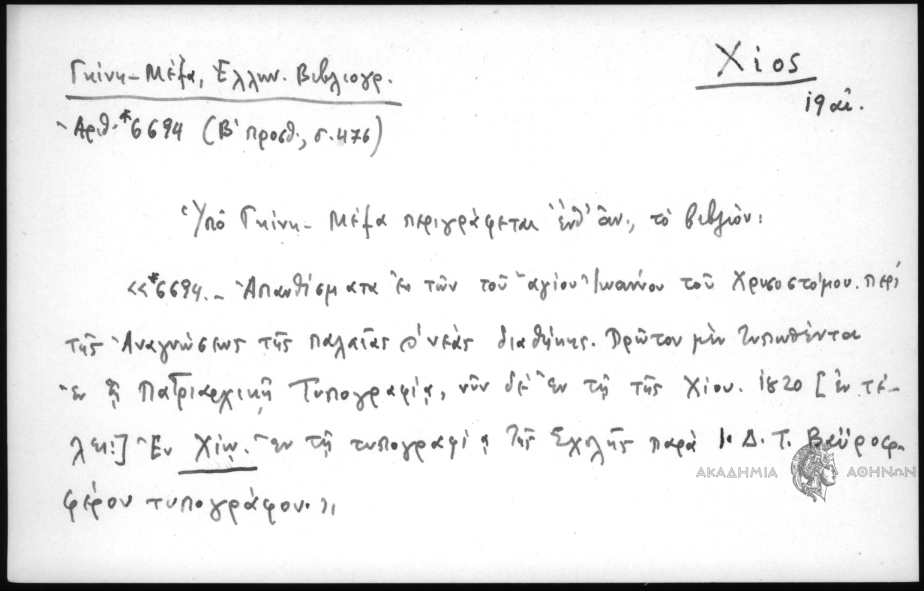 Γκίνη-Μέξα, Ἑλλην. Βιβλιογρ.
Χίος
19 αἰ.
Ἀριθ. *6694 (Β' προσθ., σ. 476)
Ὑπὸ Γκίνη-Μέξα περιγράφεται ἐνθ' ἀν., τὸ βιβλίον:
«*6694.- Ἀπανθίσματα ἐκ τῶν τοῦ ἁγίου Ἰωάννου τοῦ Χρυσοστόμου. περὶ
τῆς Ἀναγνώσεως τῆς παλαιᾶς & νέας διαθήκης. Πρῶτον μὲν τυπωθέντα
ἐν τῇ Πατριαρχικῇ Τυπογραφίᾳ, νῦν δὲ ἐν τῇ τῆς Χίου. 1820 [ἐν τέ-
λει:] Ἐν Χίῳ. ἐν τῇ τυπογραφίᾳ τῆς Σχολῆς παρὰ Δ. Τ. Βαϋροφ-
φέρου τυπογράφου.»
ΑΚΑΔΗΜΙΑ ΑΘΗΝΩΝ